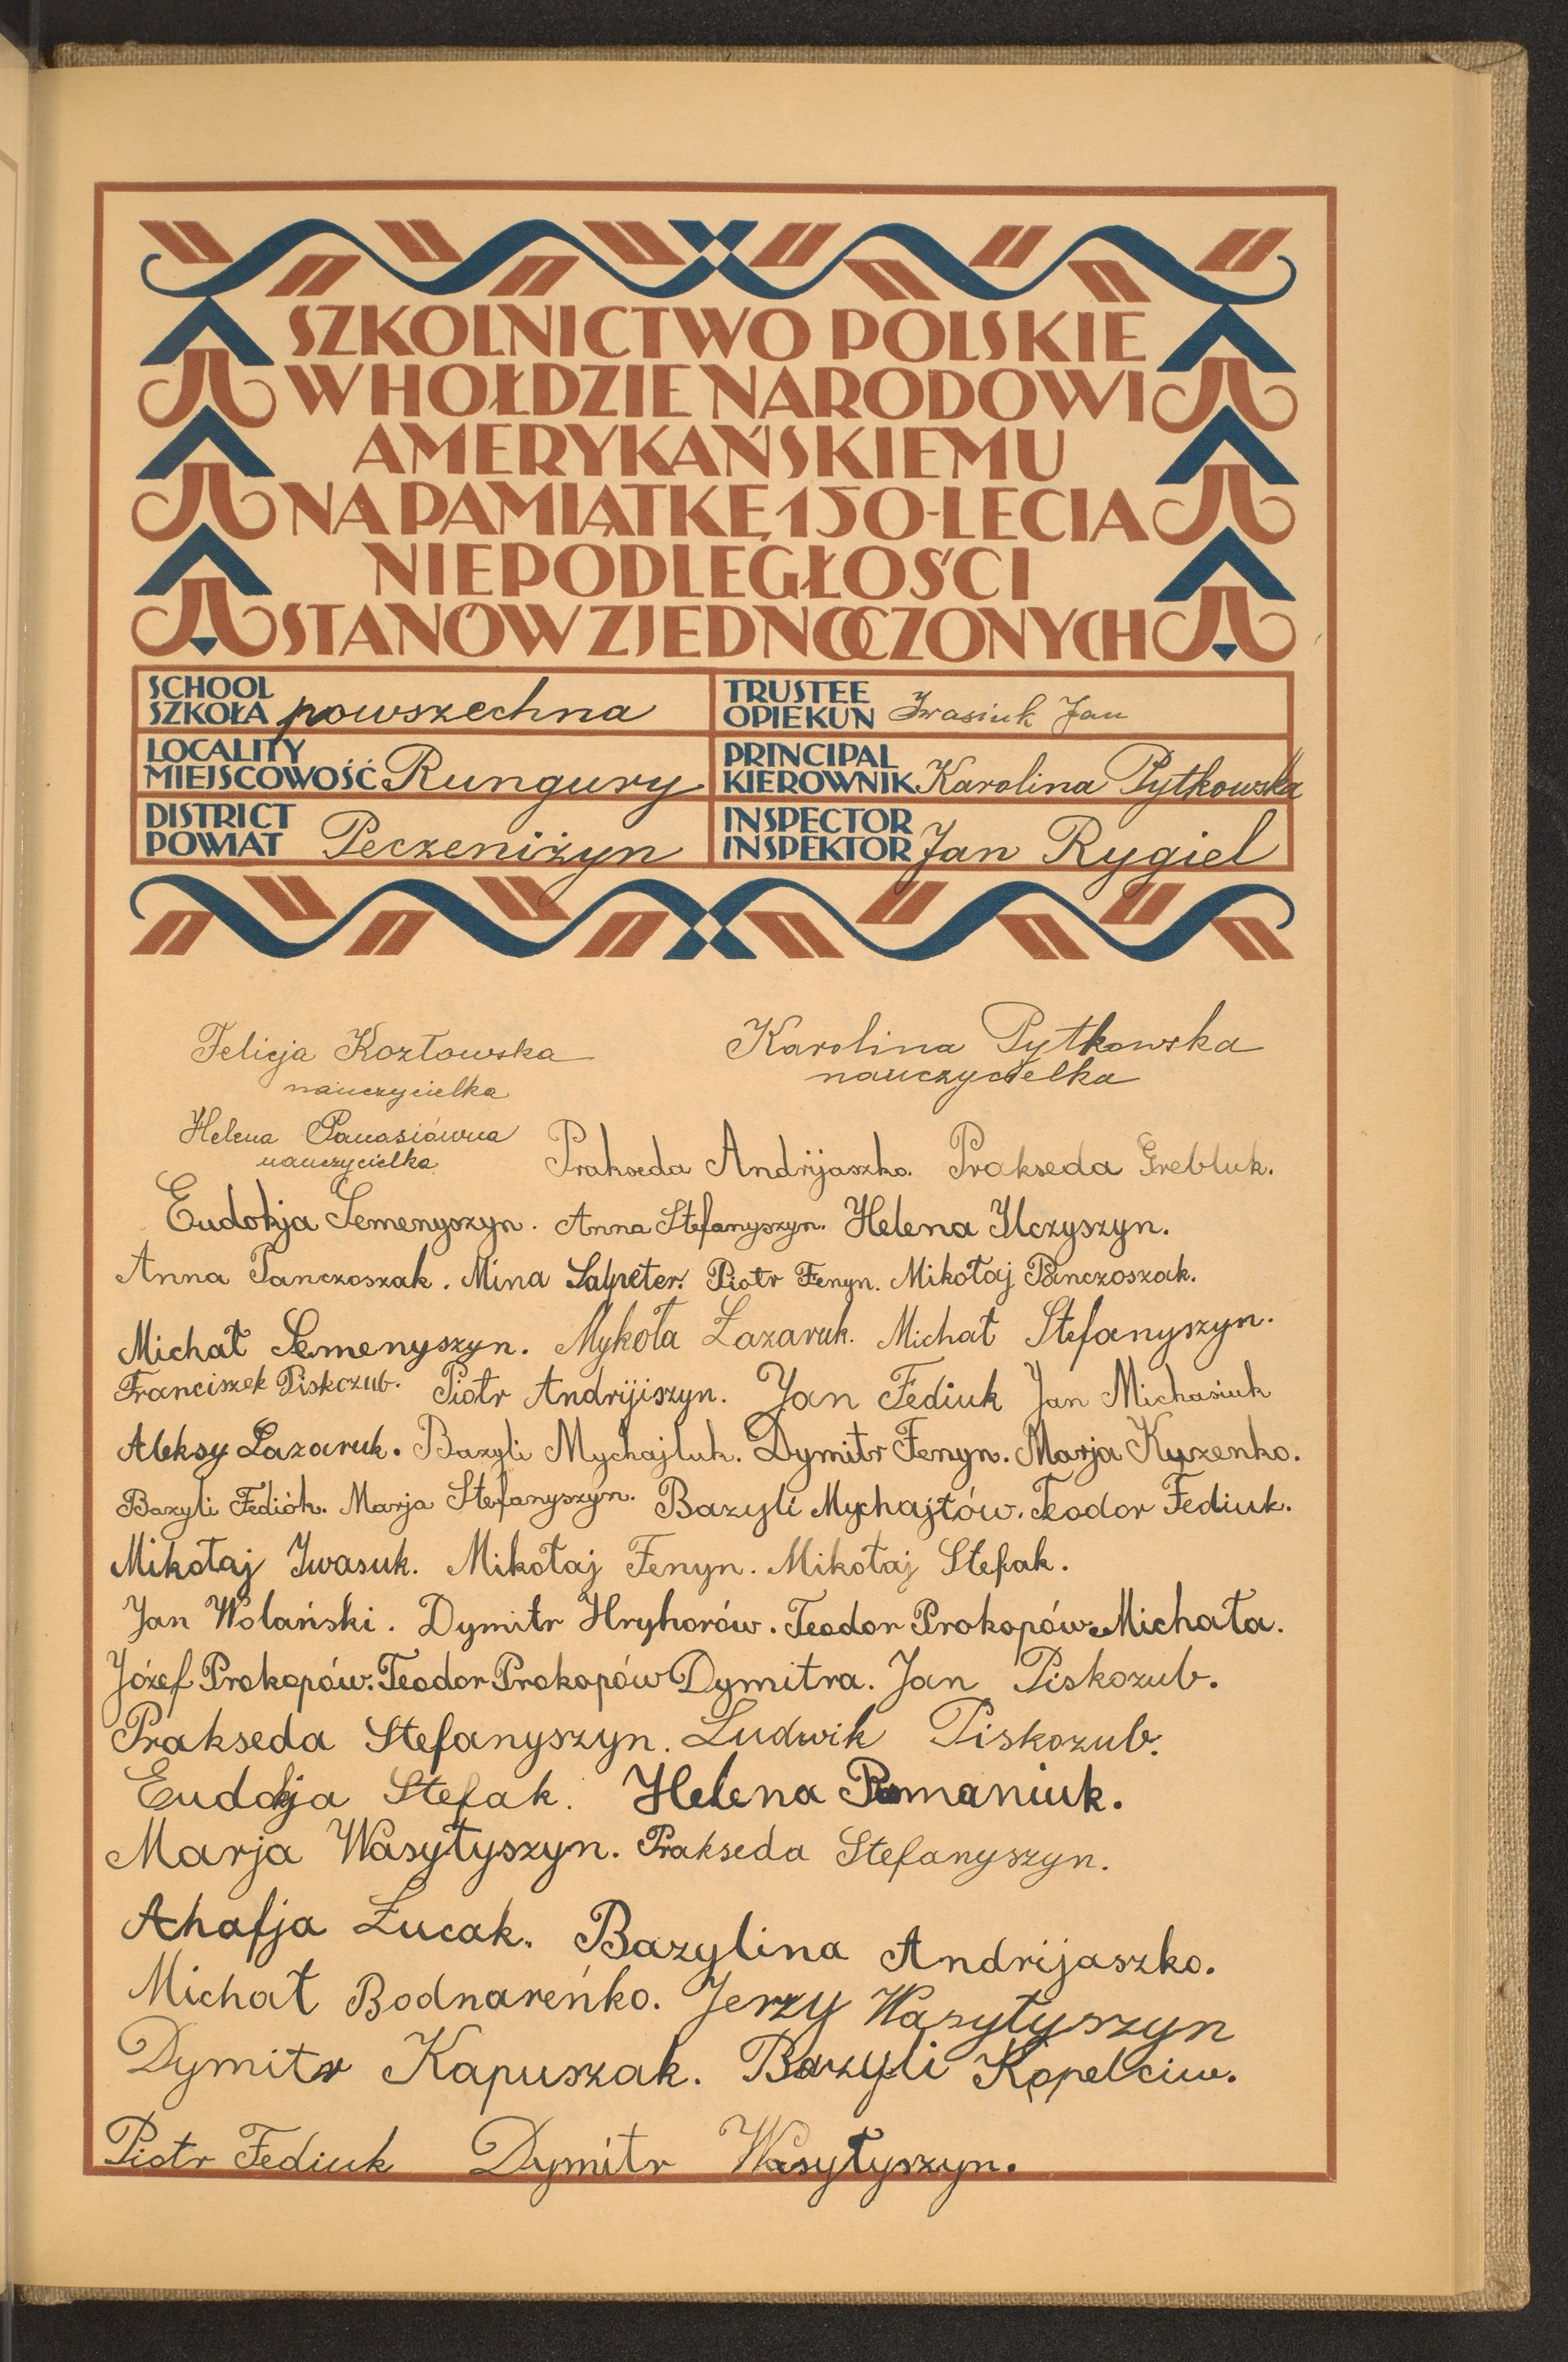 SZKOLNICTWO POLSKIE
W HOŁDZIE NARODOWI
AMERYKAŃSKIEMU
NA PAMIĄTKĘ 150-LECIA
NIEPODLEGŁOŚCI
STANÓW ZJEDNOCZONYCH
SCHOOL
SZKOŁA powszechna
TRUSTEE
OPIEKUN Iwasiuk Jan
LOCALITY
MIEJSCOWOŚĆ Rungury
PRINCIPAL
KIEROWNIK Karolina Pytkowska
DISTRICT
POWIAT Peczeniżyn
INSPECTOR
INSPEKTOR Jan Rygiel
Felicja Kozłowska
nauczycielka
Karolina Pytkowska
nauczycielka
Helena Panasiówna
nauczycielka
Prakseda Andrijaszko. Prakseda Grebluk.
Eudokja Semenyszyn. Anna Stefanyszyn. Helena Ilczyszyn.
Anna Panczoszak. Mina Salpeter. Piotr Fenyn. Mikołaj Panczoszak.
Michał Semenyszyn. Mykoła Łazaruk. Michał Stefanyszyn.
Franciszek Piskozub. Piotr Andrijiszyn. Jan Fediuk Jan Michasiuk
Aleksy Łazaruk. Bazyli Mychajluk. Dymitr Fenyn. Marja Kuzenko.
Bazyli Fediók. Marja Stefanyszyn. Bazyli Mychajłów. Teodor Fediuk.
Mikołaj Iwasuk. Mikołaj Fenyn. Mikołaj Stefak.
Jan Wolański. Dymitr Hryhorów. Teodor Prokopów Michała.
Józef Prokopów. Teodor Prokopów Dymitra. Jan Piskozub.
Prakseda Stefanyszyn. Ludwik Piskozub.
Eudokja Stefak. Helena Romaniuk.
Marja Wasyłyszyn. Prakseda Stefanyszyn.
Ahafja Łucak. Bazylina Andrijaszko.
Michał Bodnareńko. Jerzy Wasyłyszyn
Dymitr Kapuszak. Bazyli Kopelciw.
Piotr Fediuk Dymitr Wasyłyszyn.